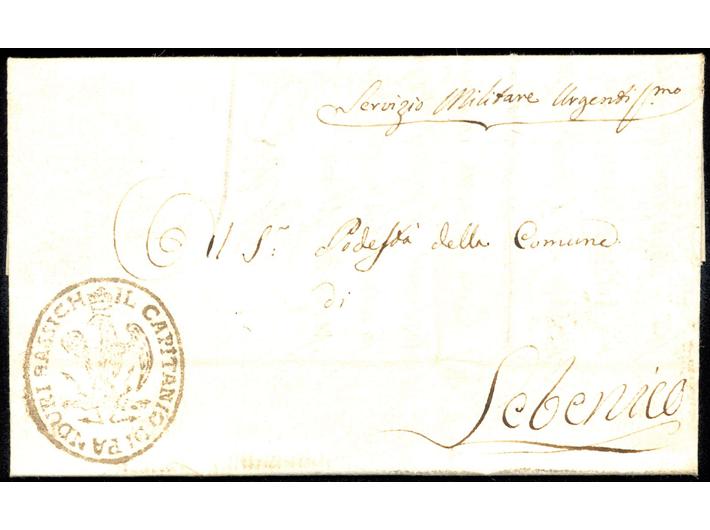 Servizio Militare Urgentiſ.mo
Al S.r Podestà della Comune
di
Sebenico
IL CAPITANIO DI PANDURI